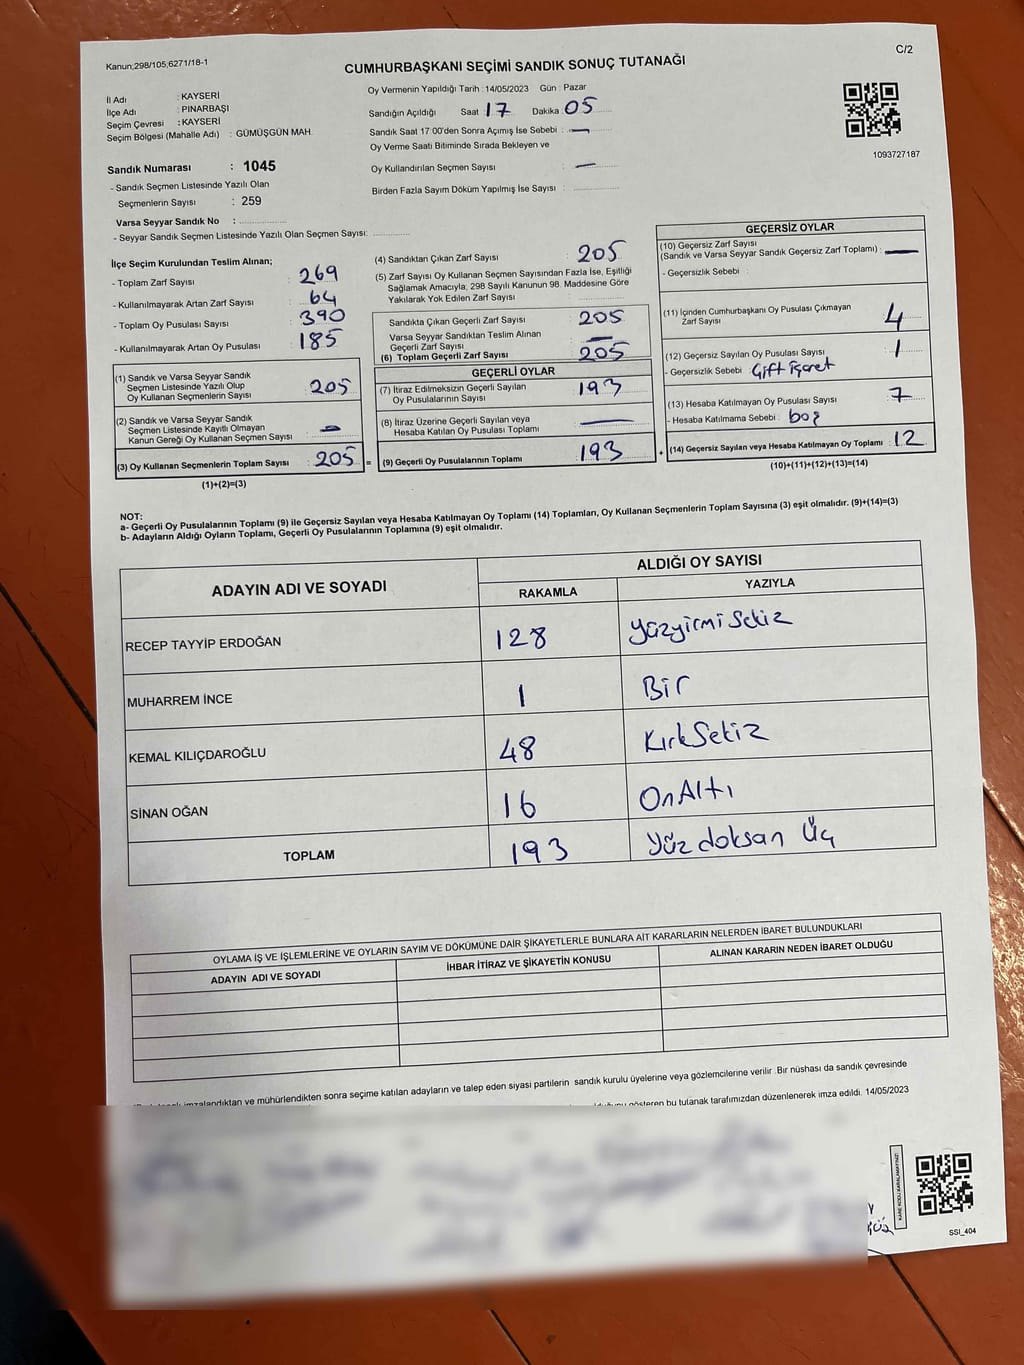 Kanun,298/105,6271/18-1
C/2
CUMHURBAŞKANI SEÇİMİ SANDIK SONUÇ TUTANAĞI
İl Adı : KAYSERİ
İlçe Adı : PINARBAŞI
Seçim Çevresi : KAYSERİ
Seçim Bölgesi (Mahalle Adı) : GÜMÜŞGÜN MAH.
Sandık Numarası : 1045
- Sandık Seçmen Listesinde Yazılı Olan
Seçmenlerin Sayısı : 259
Varsa Seyyar Sandık No :
- Seyyar Sandık Seçmen Listesinde Yazılı Olan Seçmen Sayısı:
Oy Vermenin Yapıldığı Tarih : 14/05/2023 Gün : Pazar
Sandığın Açıldığı Saat 17 Dakika 05
Sandık Saat 17:00'den Sonra Açımış İse Sebebi : —
Oy Verme Saati Bitiminde Sırada Bekleyen ve
Oy Kullandırılan Seçmen Sayısı : —
Birden Fazla Sayım Döküm Yapılmış İse Sayısı :
1093727187
İlçe Seçim Kurulundan Teslim Alınan;
- Toplam Zarf Sayısı : 269
- Kullanılmayarak Artan Zarf Sayısı : 64
- Toplam Oy Pusulası Sayısı : 390
- Kullanılmayarak Artan Oy Pusulası : 185
(1) Sandık ve Varsa Seyyar Sandık
Seçmen Listesinde Yazılı Olup
Oy Kullanan Seçmenlerin Sayısı : 205
(2) Sandık ve Varsa Seyyar Sandık
Seçmen Listesinde Kayıtlı Olmayan
Kanun Gereği Oy Kullanan Seçmen Sayısı : —
(3) Oy Kullanan Seçmenlerin Toplam Sayısı : 205
(1)+(2)=(3)
(4) Sandıktan Çıkan Zarf Sayısı : 205
(5) Zarf Sayısı Oy Kullanan Seçmen Sayısından Fazla İse, Eşitliği
Sağlamak Amacıyla, 298 Sayılı Kanunun 98. Maddesine Göre
Yakılarak Yok Edilen Zarf Sayısı :
Sandıkta Çıkan Geçerli Zarf Sayısı : 205
Varsa Seyyar Sandıktan Teslim Alınan
Geçerli Zarf Sayısı : —
(6) Toplam Geçerli Zarf Sayısı : 205
GEÇERLİ OYLAR
(7) İtiraz Edilmeksizin Geçerli Sayılan
Oy Pusulalarının Sayısı : 193
(8) İtiraz Üzerine Geçerli Sayılan veya
Hesaba Katılan Oy Pusulası Toplamı : —
= (9) Geçerli Oy Pusulalarının Toplamı : 193
GEÇERSİZ OYLAR
(10) Geçersiz Zarf Sayısı
(Sandık ve Varsa Seyyar Sandık Geçersiz Zarf Toplamı) : —
- Geçersizlik Sebebi :
(11) İçinden Cumhurbaşkanı Oy Pusulası Çıkmayan
Zarf Sayısı : 4
(12) Geçersiz Sayılan Oy Pusulası Sayısı : 1
- Geçersizlik Sebebi : Çift işaret
(13) Hesaba Katılmayan Oy Pusulası Sayısı : 7
- Hesaba Katılmama Sebebi : boş
+ (14) Geçersiz Sayılan veya Hesaba Katılmayan Oy Toplamı : 12
(10)+(11)+(12)+(13)=(14)
NOT:
a- Geçerli Oy Pusulalarının Toplamı (9) ile Geçersiz Sayılan veya Hesaba Katılmayan Oy Toplamı (14) Toplamları, Oy Kullanan Seçmenlerin Toplam Sayısına (3) eşit olmalıdır. (9)+(14)=(3)
b- Adayların Aldığı Oyların Toplamı, Geçerli Oy Pusulalarının Toplamına (9) eşit olmalıdır.
ADAYIN ADI VE SOYADI ALDIĞI OY SAYISI
RAKAMLA YAZIYLA
RECEP TAYYİP ERDOĞAN 128 Yüzyirmi Sekiz
MUHARREM İNCE 1 Bir
KEMAL KILIÇDAROĞLU 48 Kırk Sekiz
SİNAN OĞAN 16 On Altı
TOPLAM 193 Yüz doksan Üç
OYLAMA İŞ VE İŞLEMLERİNE VE OYLARIN SAYIM VE DÖKÜMÜNE DAİR ŞİKAYETLERLE BUNLARA AİT KARARLARIN NELERDEN İBARET BULUNDUKLARI
ADAYIN ADI VE SOYADI İHBAR İTİRAZ VE ŞİKAYETİN KONUSU ALINAN KARARIN NEDEN İBARET OLDUĞU
imzalandıktan ve mühürlendikten sonra seçime katılan adayların ve talep eden siyasi partilerin sandık kurulu üyelerine veya gözlemcilerine verilir .Bir nüshası da sandık çevresinde
gösteren bu tutanak tarafımızdan düzenlenerek imza edildi. 14/05/2023
SSI_404